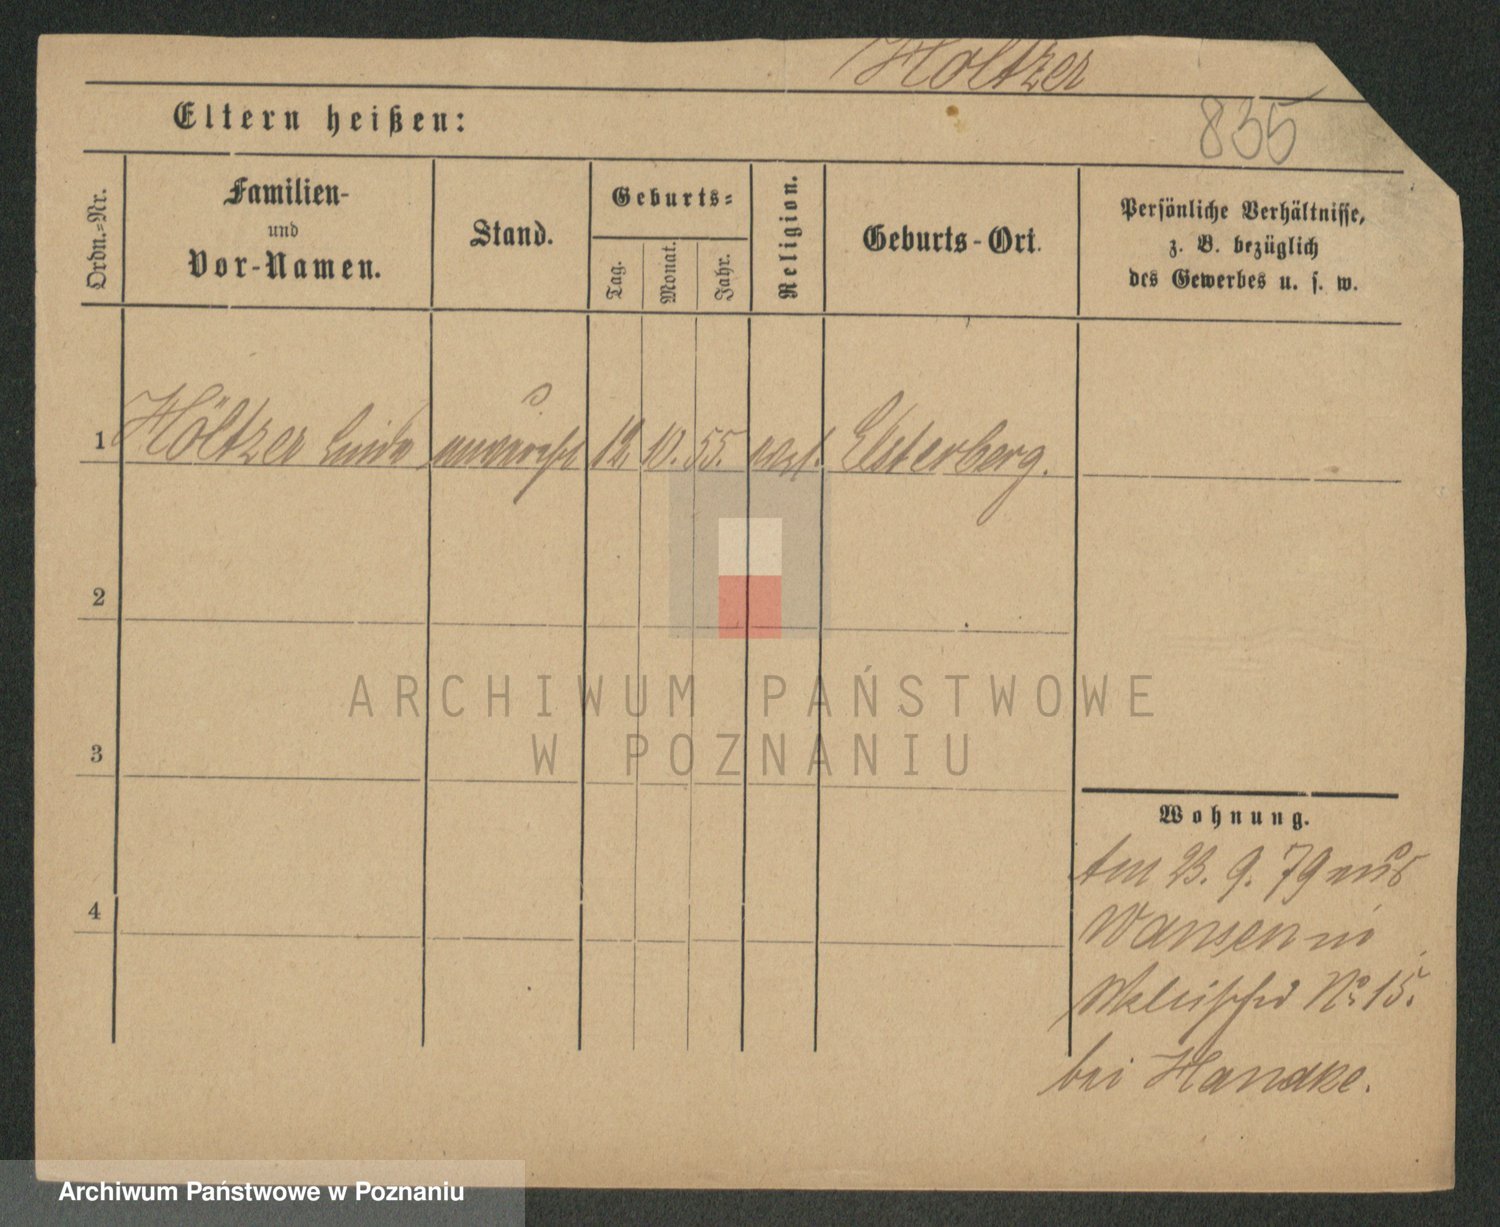 Höltzer
835
Eltern heißen:
Ordn.-Nr.
Familien-
und
Vor-Namen.
Stand.
Geburts-
Tag.
Monat.
Jahr.
Religion.
Geburts-Ort.
Persönliche Verhältnisse,
z. B. bezüglich
des Gewerbes u. s. w.
1 Höltzer unverehl 12. 10. 55. Elsterberg.
2
3
4
ARCHIWUM PAŃSTWOWE
W POZNANIU
Wohnung.
Am 23. 9. 79 aus
Wansen in
No 15.
bei Handke.
Archiwum Państwowe w Poznaniu